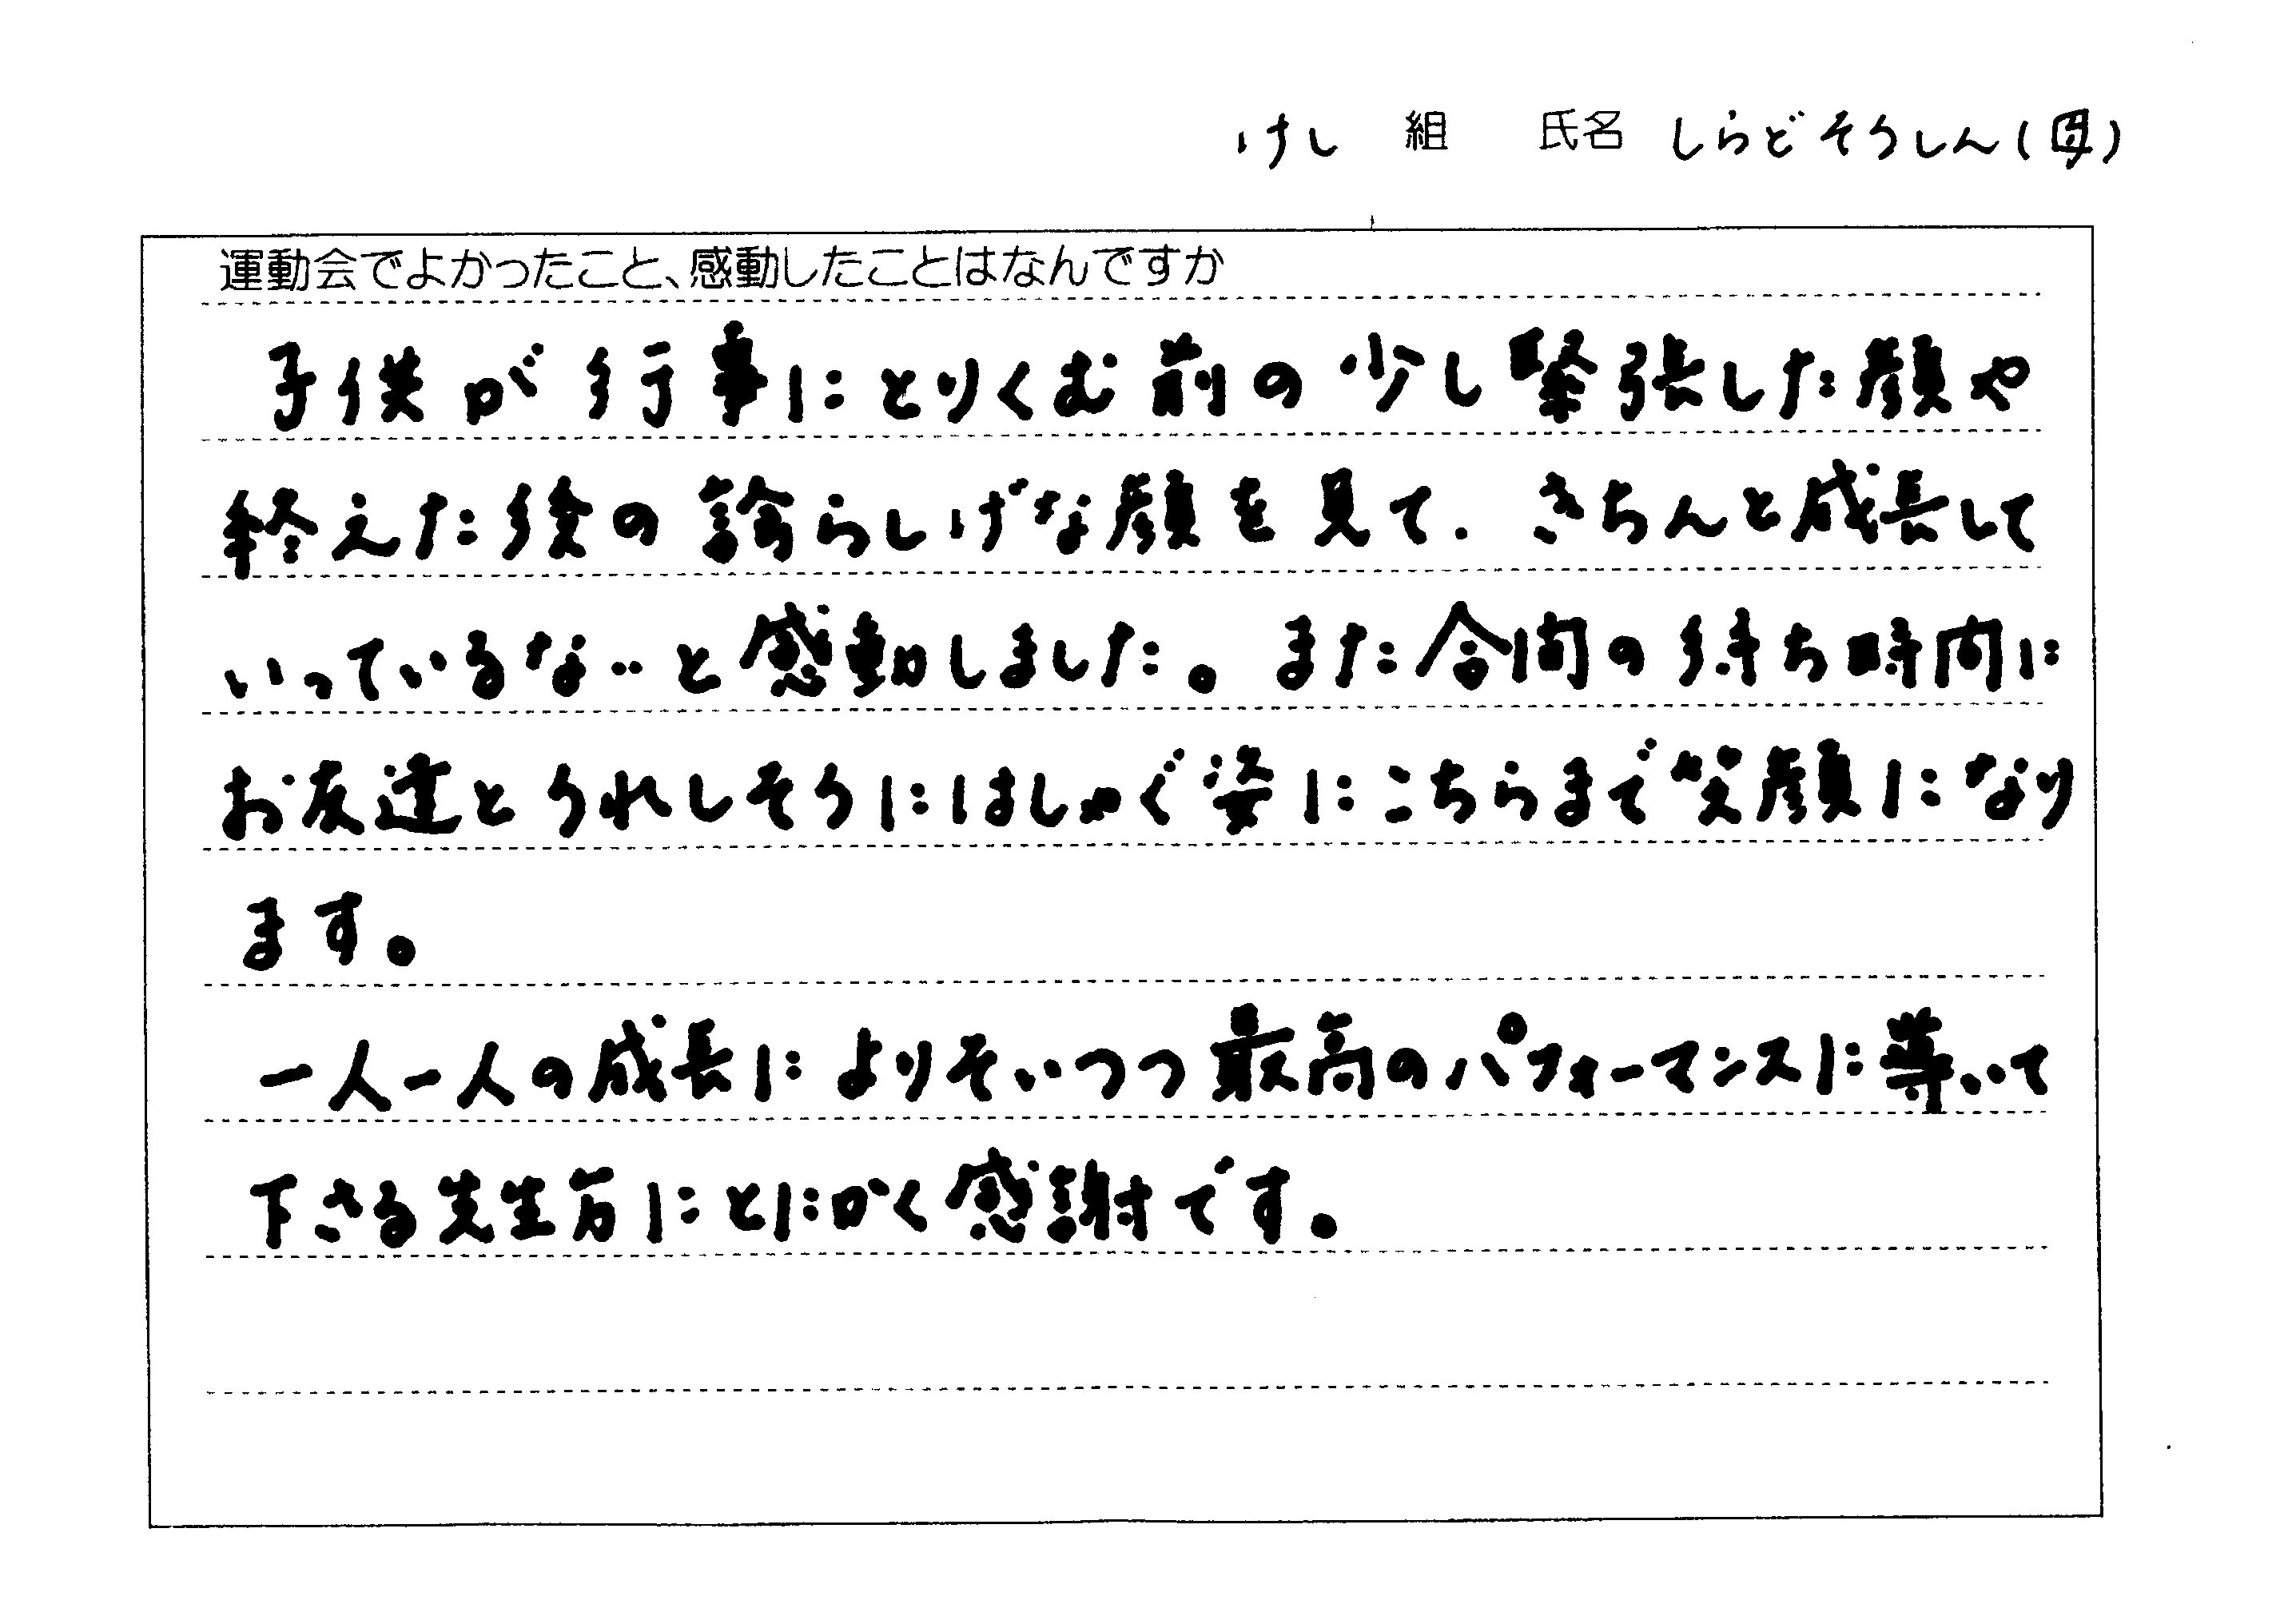 けし 組 氏名 しらどそうしん(母)
運動会でよかったこと、感動したことはなんですか
子供が行事にとりくむ前の少し緊張した顔や
終えた後の誇らしげな顔を見て、きちんと成長して
いっているな‥と感動しました。また合間の待ち時間に
お友達とうれしそうにはしゃぐ姿にこちらまで笑顔になり
ます。
一人一人の成長によりそいつつ最高のパフォーマンスに導いて
下さる先生方にとにかく感謝です。